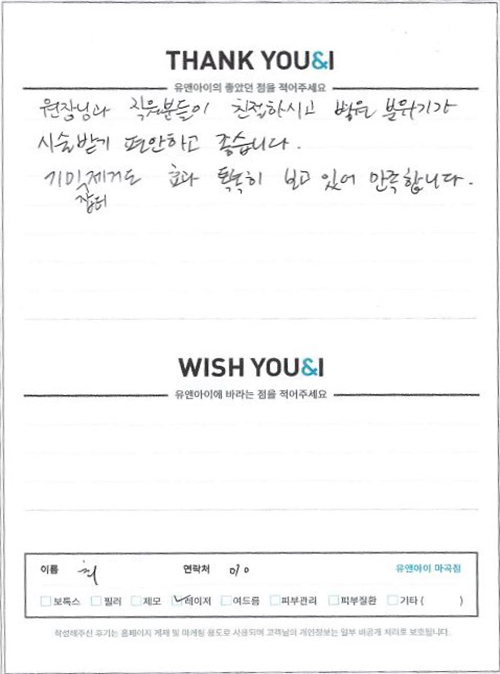 THANK YOU&I
유앤아이의 좋았던 점을 적어주세요
원장님과 직원분들이 친절하시고 밝은 분위기가
시술받기 편안하고 좋습니다.
기미제거도 효과 톡톡히 보고 있어 만족합니다.
잡티
WISH YOU&I
유앤아이에 바라는 점을 적어주세요
이름 최 연락처 010 유앤아이 마곡점
보톡스 필러 제모 레이저 여드름 피부관리 피부질환 기타 ( )
작성해주신 후기는 홈페이지 게재 및 마케팅 용도로 사용되며 고객님의 개인정보는 일부 비공개 처리로 보호됩니다.